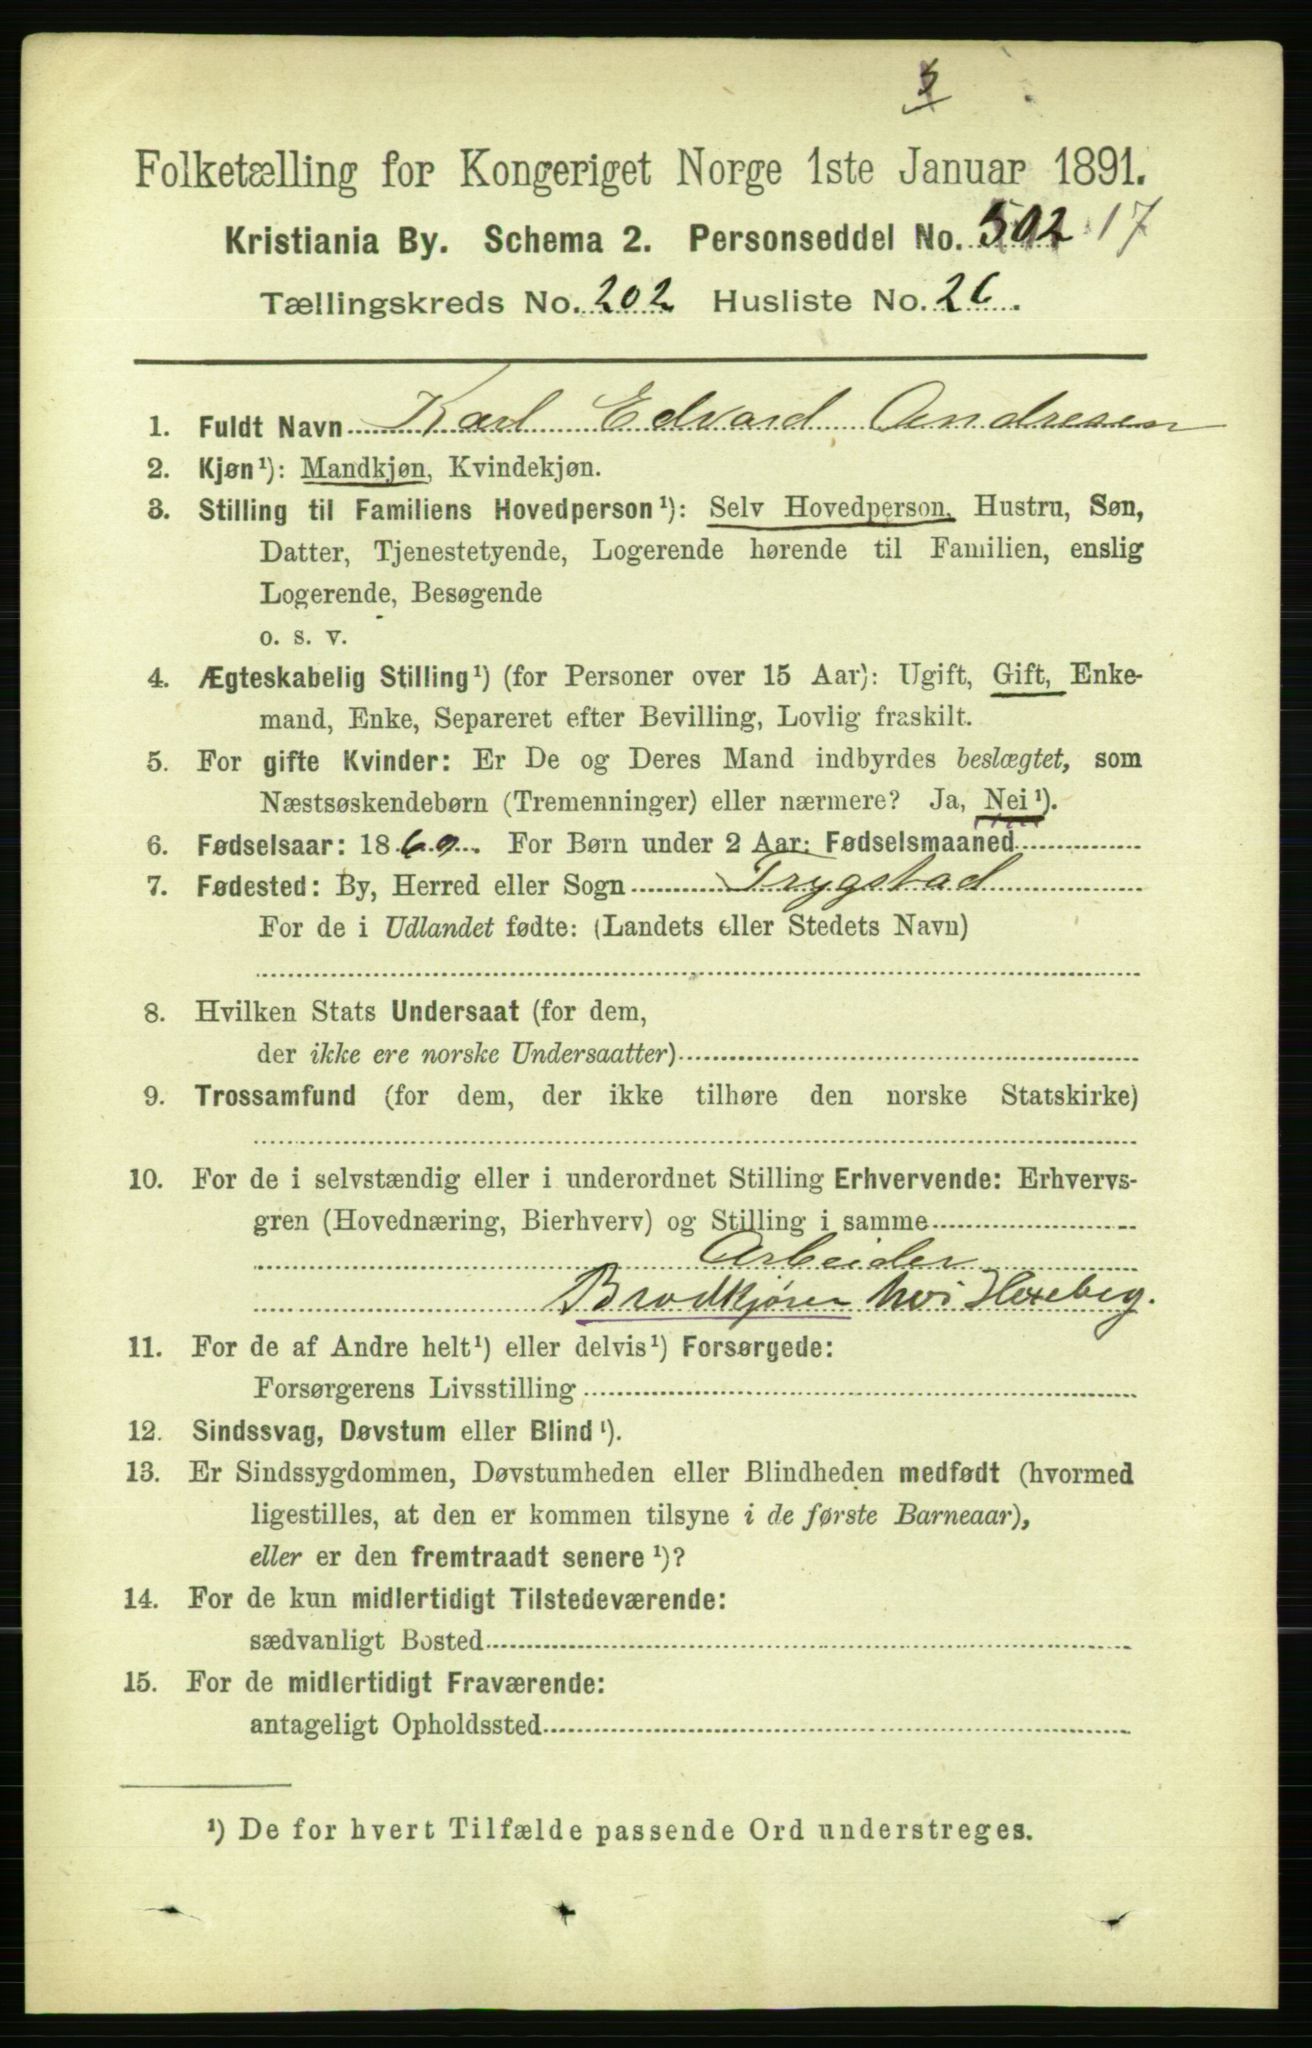 3
Folketælling for Kongeriget Norge 1ste Januar 1891.
Kristiania By. Schema 2. Personseddel No. 502 17
Tællingskreds No. 202 Husliste No. 26.
1. Fuldt Navn Karl Edvard Andresen
2. Kjøn¹): Mandkjøn, Kvindekjøn.
3. Stilling til Familiens Hovedperson¹): Selv Hovedperson, Hustru, Søn,
Datter, Tjenestetyende, Logerende hørende til Familien, enslig
Logerende, Besøgende
o. s. v.
4. Ægteskabelig Stilling¹) (for Personer over 15 Aar): Ugift, Gift, Enke-
mand, Enke, Separeret efter Bevilling, Lovlig fraskilt.
5. For gifte Kvinder: Er De og Deres Mand indbyrdes beslægtet, som
Næstsøskendebørn (Tremenninger) eller nærmere? Ja, Nei¹).
6. Fødselsaar: 1860. For Børn under 2 Aar: Fødselsmaaned
7. Fødested: By, Herred eller Sogn Trygstad
For de i Udlandet fødte: (Landets eller Stedets Navn)
8. Hvilken Stats Undersaat (for dem,
der ikke ere norske Undersaatter)
9. Trossamfund (for dem, der ikke tilhøre den norske Statskirke)
10. For de i selvstændig eller i underordnet Stilling Erhvervende: Erhvervs-
gren (Hovednæring, Bierhverv) og Stilling i samme
Arbeider
Brødkjører hos
11. For de af Andre helt¹) eller delvis¹) Forsørgede:
Forsørgerens Livsstilling
12. Sindssvag, Døvstum eller Blind¹).
13. Er Sindssygdommen, Døvstumheden eller Blindheden medfødt (hvormed
ligestilles, at den er kommen tilsyne i de første Barneaar),
eller er den fremtraadt senere¹)?
14. For de kun midlertidigt Tilstedeværende:
sædvanligt Bosted
15. For de midlertidigt Fraværende:
antageligt Opholdssted
¹) De for hvert Tilfælde passende Ord understreges.